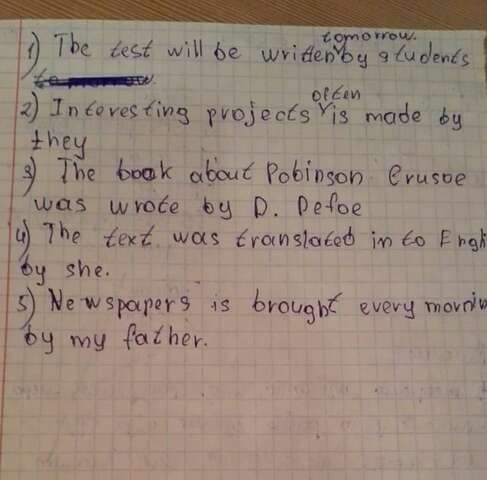 tomorrow.
1) The test will be written by students
often
2) Interesting projects is made by
they
3) The book about Robinson Crusoe
was wrote by D. Defoe
4) The text was translated in to Engli
by she.
5) Newspapers is brought every mornin
by my father.